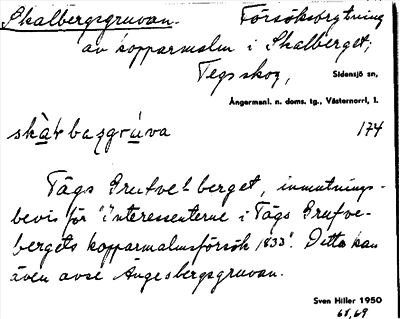 Skalbergsgruvan. Försöksbrytning
av kopparmalm i Skalberget,
Tegs skog, Sidensjö sn,
Ångermanl. n. doms. tg., Västernorrl. l.
174
Tägs Grufvel berget, inmutnings-
bevis för "Interessenterne i Tägs Grufve-
bergets kopparmalmsförsök 1833". Detta kan
även avse Ängesbergsgruvan.
Sven Hiller 1950
68,69